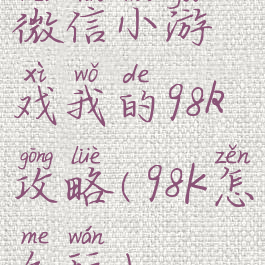 微信小游
xì wǒ de
戏我的98k
gōng lüè zěn
攻略(98k怎
me wán